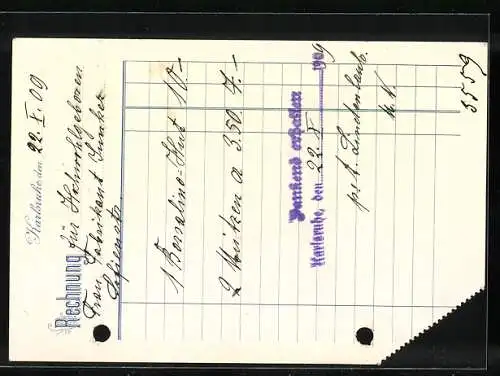 Karlsruhe, den 22. V. 09
Rechnung für Hochwohlgeboren
Frau Fabrikant Junker
1 Borsalino-Hut 10.-
2 Mützen a 3.50 7.-
Dankend erhalten
Karlsruhe, den 22. 5. 1909
ppt. Lindenlaub.